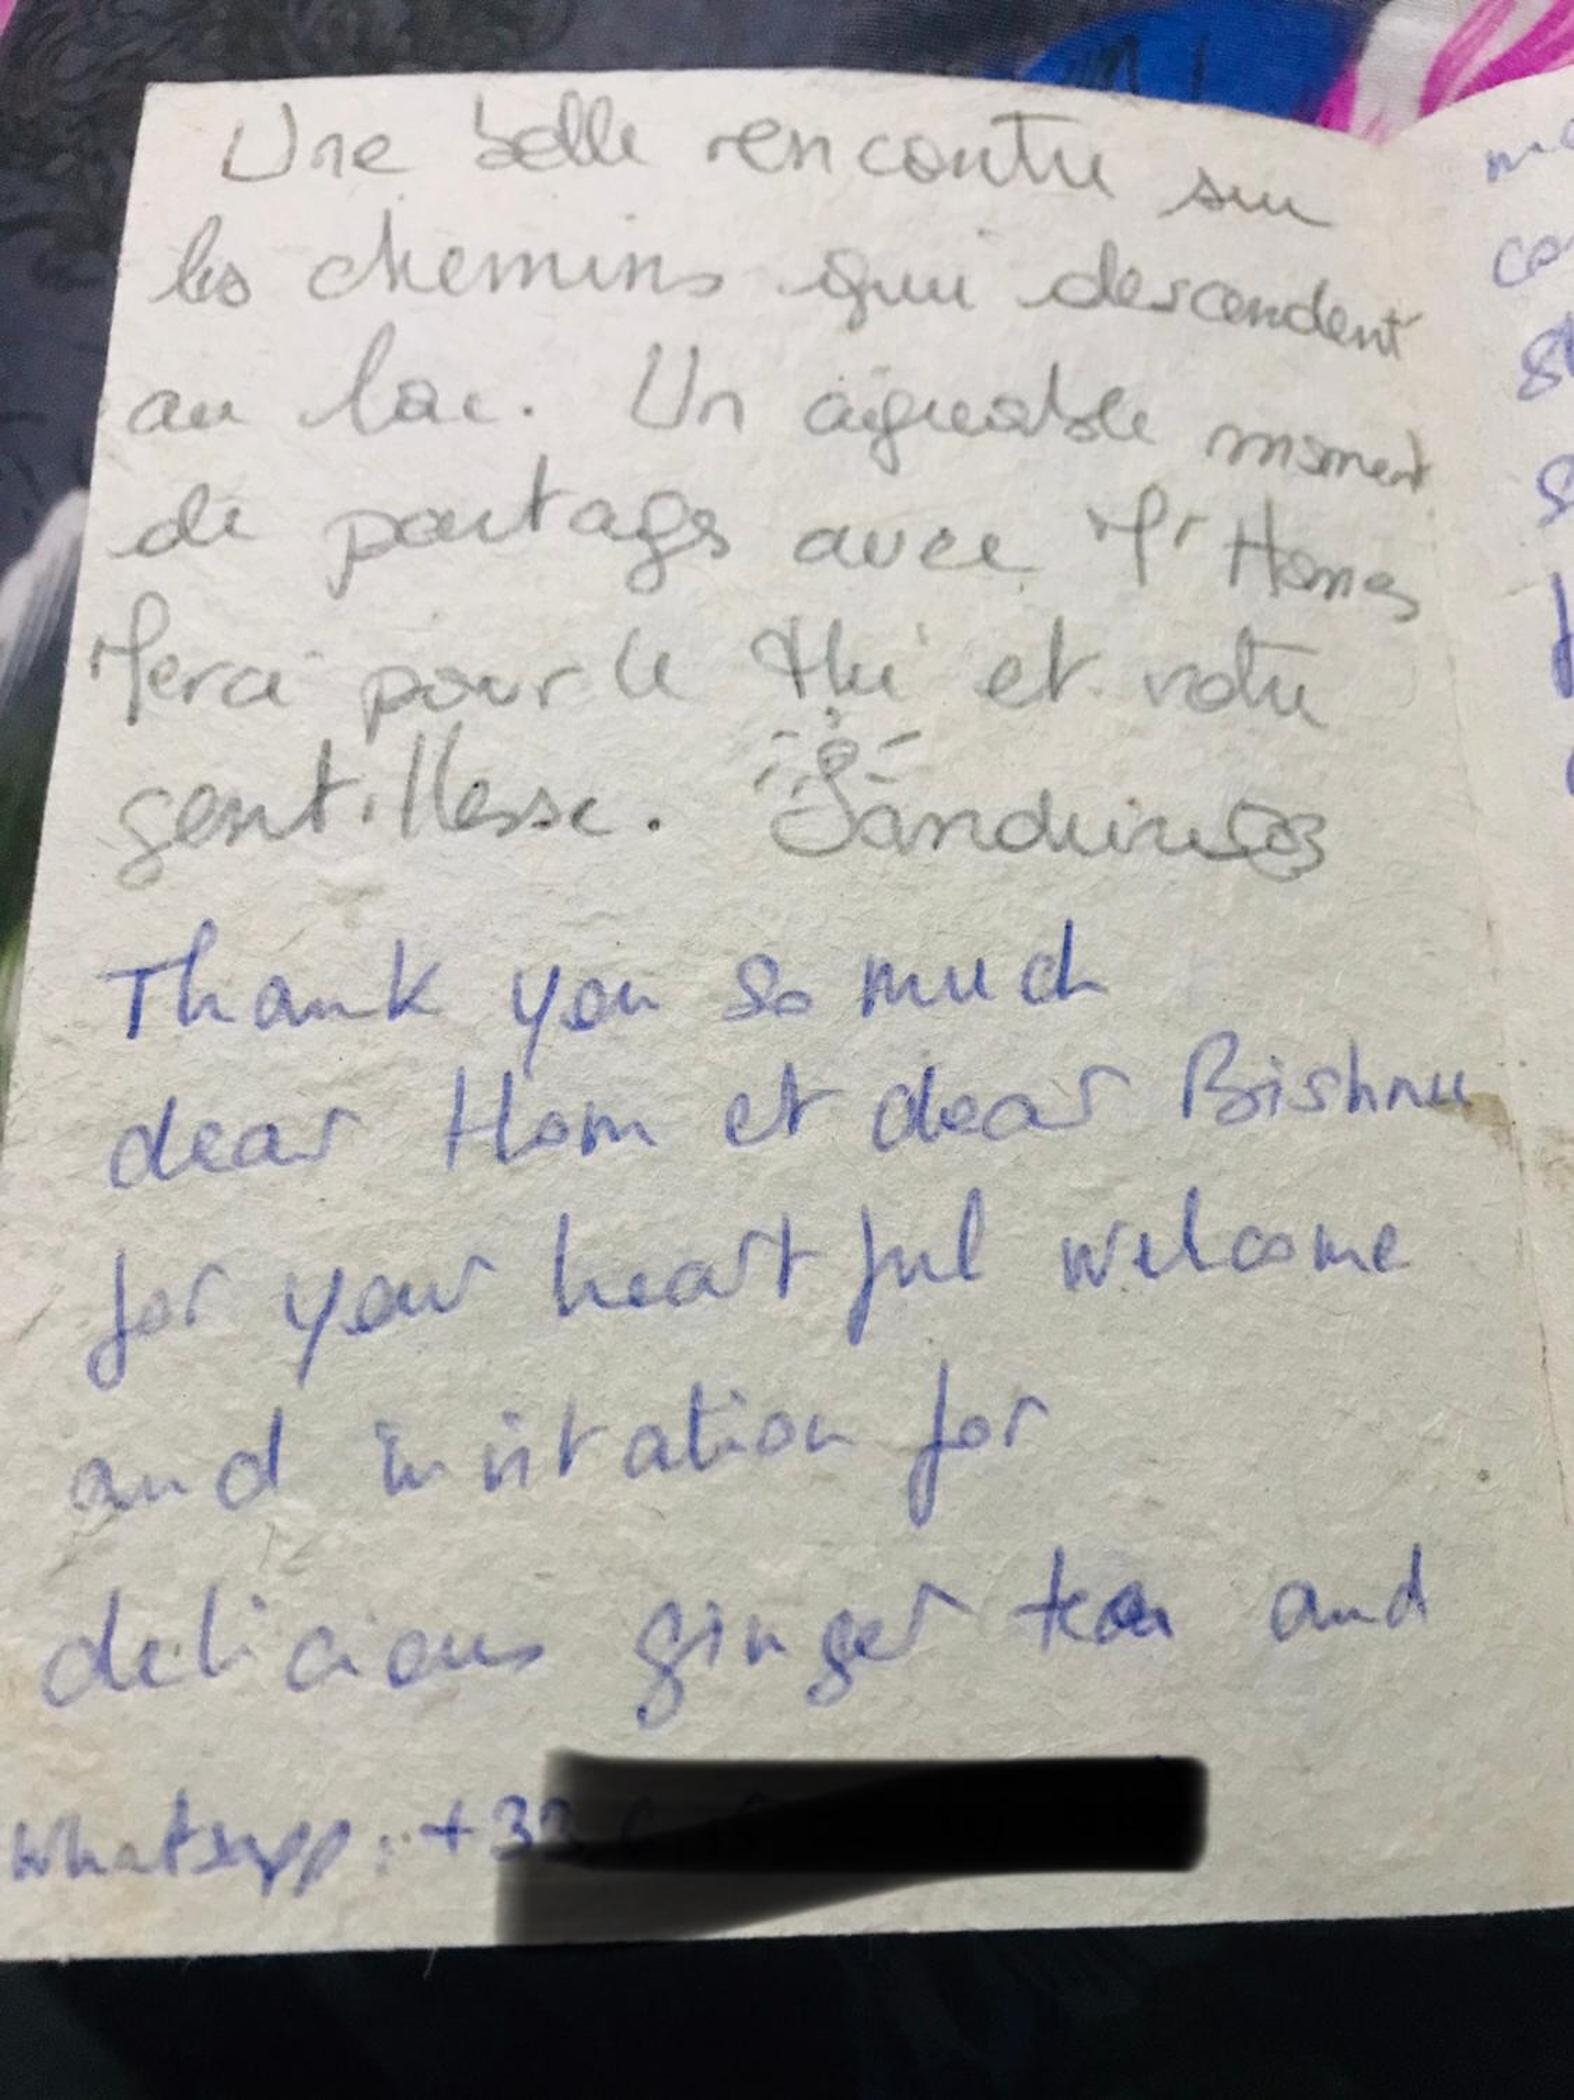 Une belle rencontre sur
les chemins qui descendent
au lac. Un agreable moment
de partage avec Mr Hom
Merci pour le thé et votre
gentillesse. Sandrine
Thank you so much
dear Hom et dear Bishnu
for your heartful welcome
and invitation for
delicious ginger tea and
Whatsapp: +33